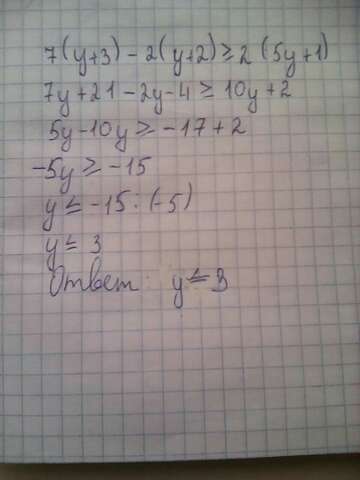 7(y+3) - 2(y+2) ≥ 2(5y+1)
7y+21-2y-4 ≥ 10y+2
5y-10y ≥ -17+2
-5y ≥ -15
y ≤ -15 : (-5)
y ≤ 3
Ответ: y ≤ 3